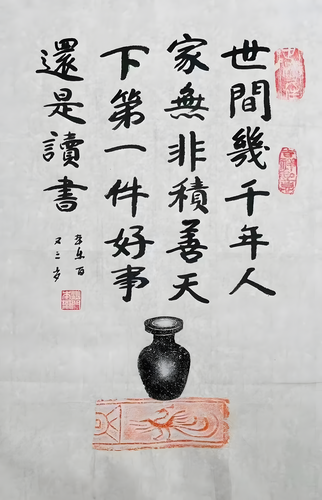 世間幾千年人
家無非積善天
下第一件好事
還是讀書